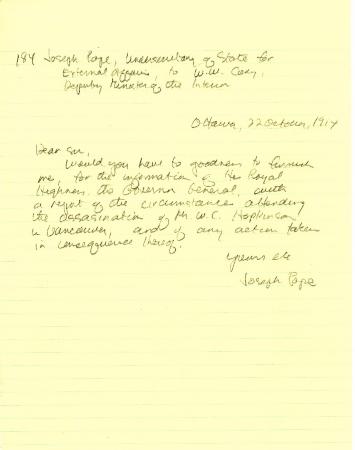 184 Joseph Pope, Undersecretary of State for
External Affairs, to W.W. Cory,
Deputy Minister of the Interior
Ottawa, 22 October, 1914
Dear Sir,
Would you have to goodness to furnish
me, for the information of His Royal
Highness the Governor General, with
a report of the circumstances attending
the assasination of Mr W.C. Hopkinson
in Vancouver, and of any action taken
in consequence thereof.
Yours etc
Joseph Pope